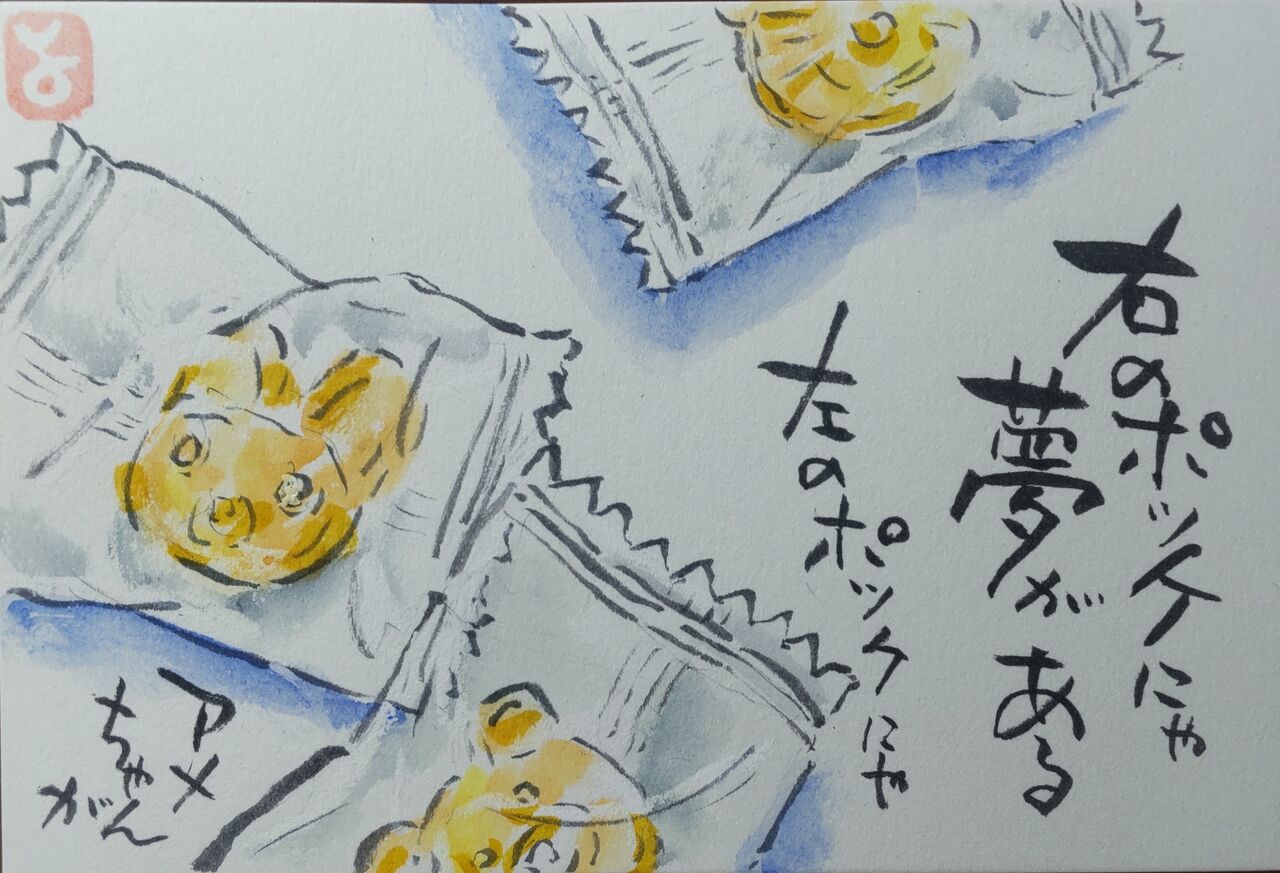 右のポッケにゃ
夢がある
左のポッケにゃ
アメ
ちゃん
が